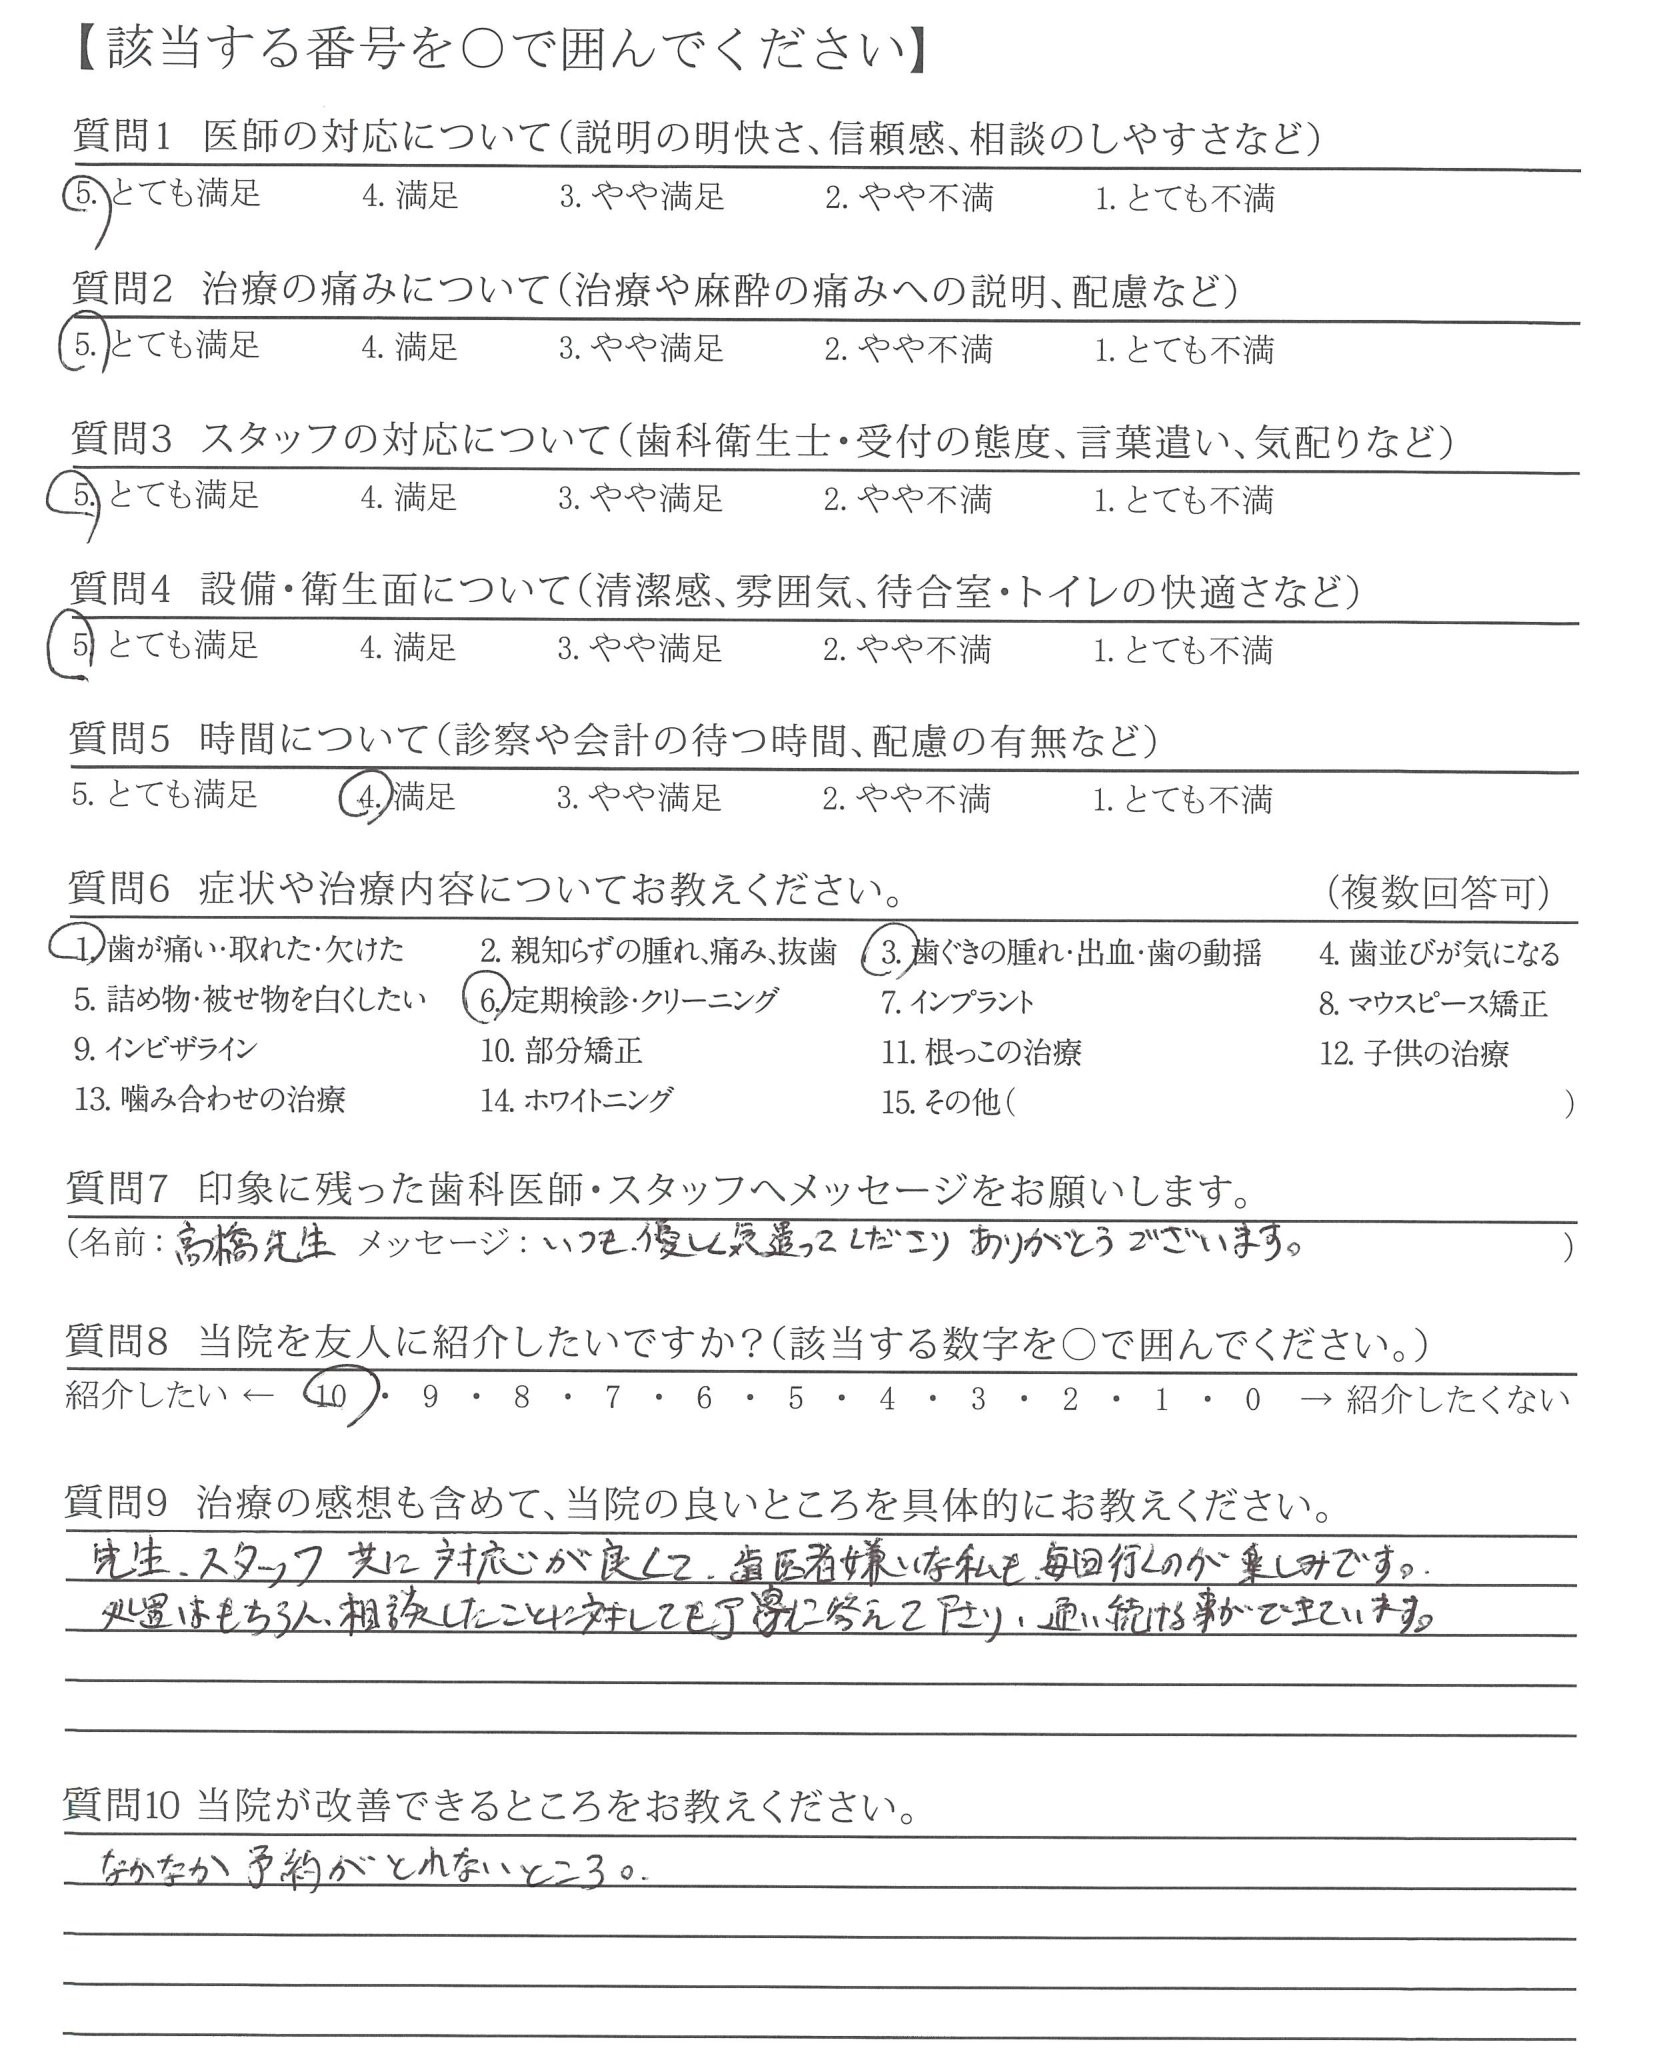 【該当する番号を〇で囲んでください】
質問1 医師の対応について（説明の明快さ、信頼感、相談のしやすさなど）
5. とても満足 4. 満足 3. やや満足 2. やや不満 1. とても不満
質問2 治療の痛みについて（治療や麻酔の痛みへの説明、配慮など）
5. とても満足 4. 満足 3. やや満足 2. やや不満 1. とても不満
質問3 スタッフの対応について（歯科衛生士・受付の態度、言葉遣い、気配りなど）
5. とても満足 4. 満足 3. やや満足 2. やや不満 1. とても不満
質問4 設備・衛生面について（清潔感、雰囲気、待合室・トイレの快適さなど）
5. とても満足 4. 満足 3. やや満足 2. やや不満 1. とても不満
質問5 時間について（診察や会計の待つ時間、配慮の有無など）
5. とても満足 4. 満足 3. やや満足 2. やや不満 1. とても不満
質問6 症状や治療内容についてお教えください。 （複数回答可）
1. 歯が痛い・取れた・欠けた 2. 親知らずの腫れ、痛み、抜歯 3. 歯ぐきの腫れ・出血・歯の動揺 4. 歯並びが気になる
5. 詰め物・被せ物を白くしたい 6. 定期検診・クリーニング 7. インプラント 8. マウスピース矯正
9. インビザライン 10. 部分矯正 11. 根っこの治療 12. 子供の治療
13. 噛み合わせの治療 14. ホワイトニング 15. その他（ ）
質問7 印象に残った歯科医師・スタッフへメッセージをお願いします。
（名前：高橋先生 メッセージ：いつも優しく気遣ってくださり ありがとうございます。 ）
質問8 当院を友人に紹介したいですか？（該当する数字を〇で囲んでください。）
紹介したい ← 10 ・ 9 ・ 8 ・ 7 ・ 6 ・ 5 ・ 4 ・ 3 ・ 2 ・ 1 ・ 0 → 紹介したくない
質問9 治療の感想も含めて、当院の良いところを具体的にお教えください。
先生、スタッフ 共に 対応が良くて、歯医者嫌いな私も毎回行くのが楽しみです。
処置はもちろん、相談したことに対しても丁寧に答えて下さり、通い続ける事ができています。
質問10 当院が改善できるところをお教えください。
なかなか予約がとれないところ。